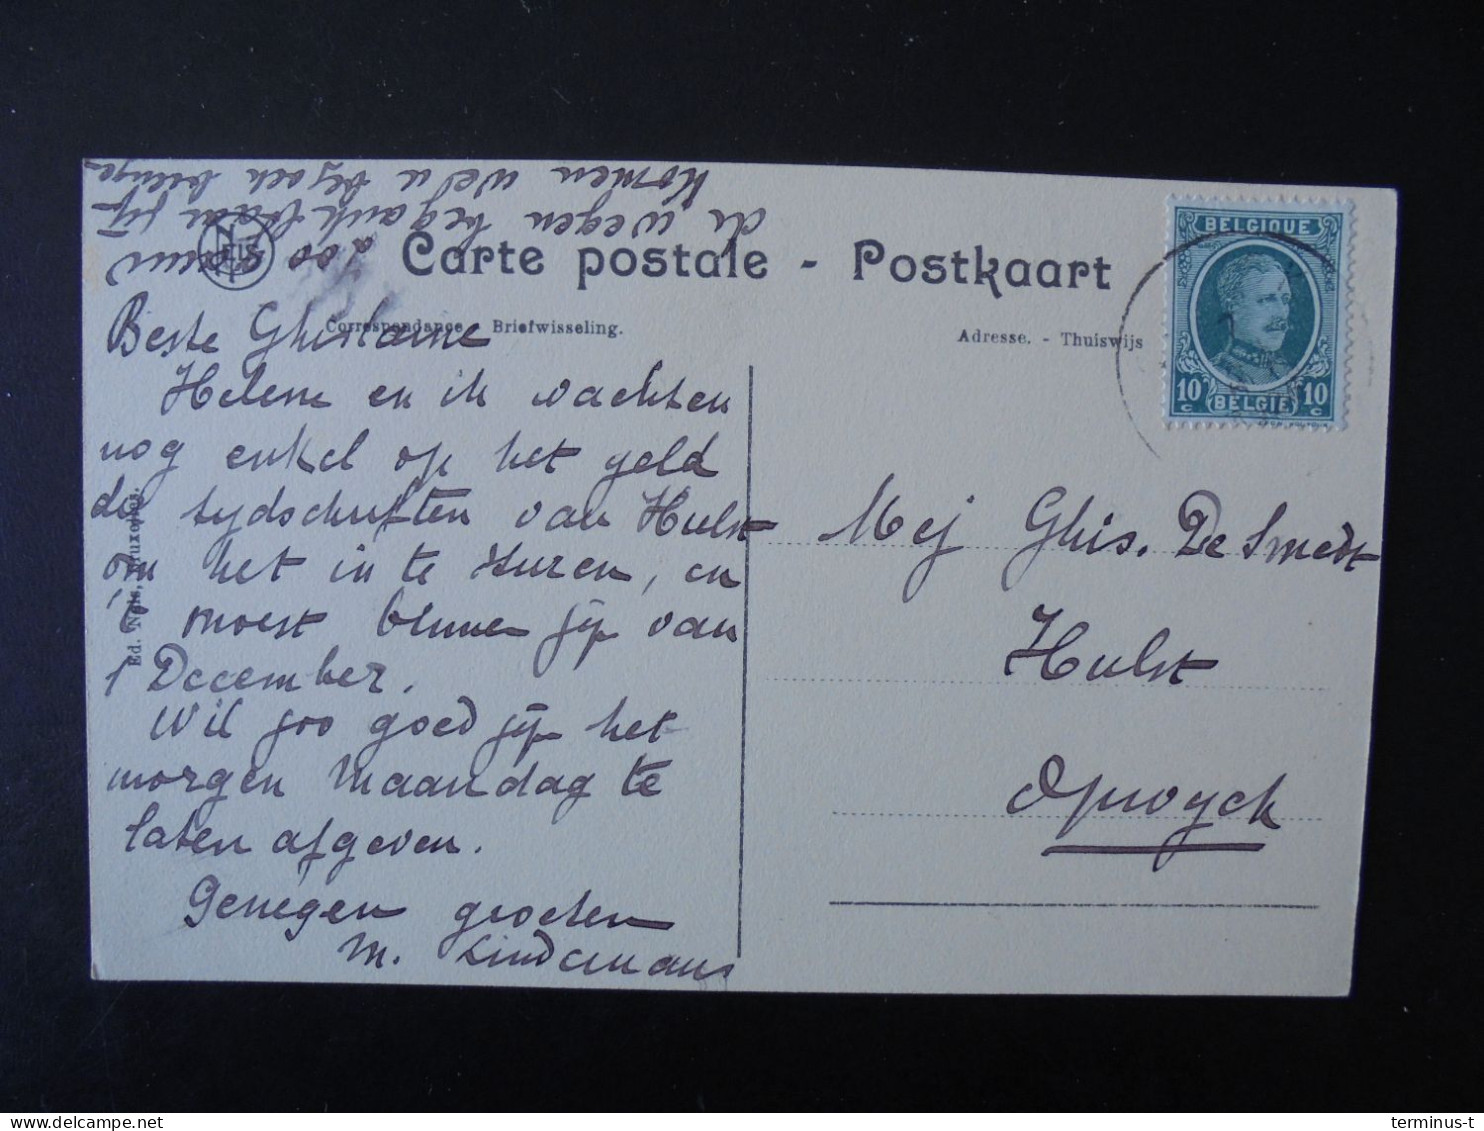 Carte postale - Postkaart
Correspondance - Briefwisseling.
Adresse. - Thuiswijs
BELGIQUE
10 c BELGIE 10 c
NELS
Ed. Nels, Bruxelles.
Beste Ghislaine
Helene en ik wachten
nog enkel op het geld
der tydschriften van Hulst
om het in te sturen, en
't moest binnen zijn van
1 December.
Wil zoo goed zijn het
morgen Maandag te
laten afgeven.
Genegen groeten
M. Lindemans
zoo
de wegen begankbaar zijn
komen we u bezoek brengen
Mej Ghis. De Smedt
Hulst
Opwyck
terminus-t